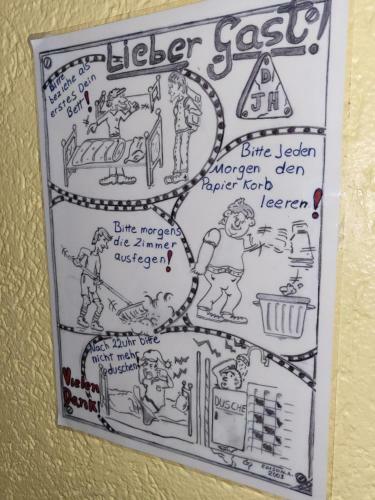 Lieber Gast!
DJH
Bitte
beziehe als
erstes Dein
Bett!
Bitte Jeden
Morgen den
Papier Korb
leeren!
Bitte morgens
die Zimmer
ausfegen!
Nach 22Uhr bitte
nicht mehr
duschen
DUSCHE
Vielen
Dank!
2003